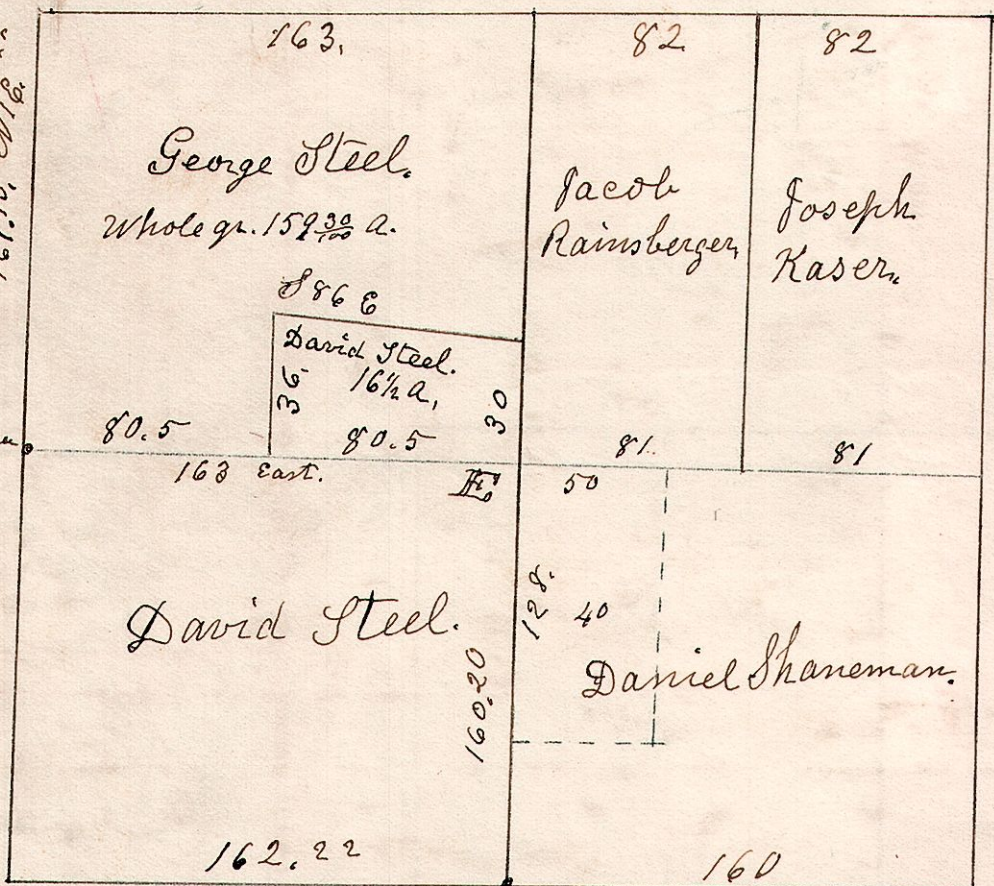 163.
82
82
George Steel.
Whole qr. 159 30/100 a.
Jacob
Rainsberger
Joseph
Kaser.
S 86 E
David Steel.
16½ a.
36
30
80.5
80.5
81
81
163 East.
E
50
128.
40
David Steel.
160.20
Daniel Shaneman.
162.22
160